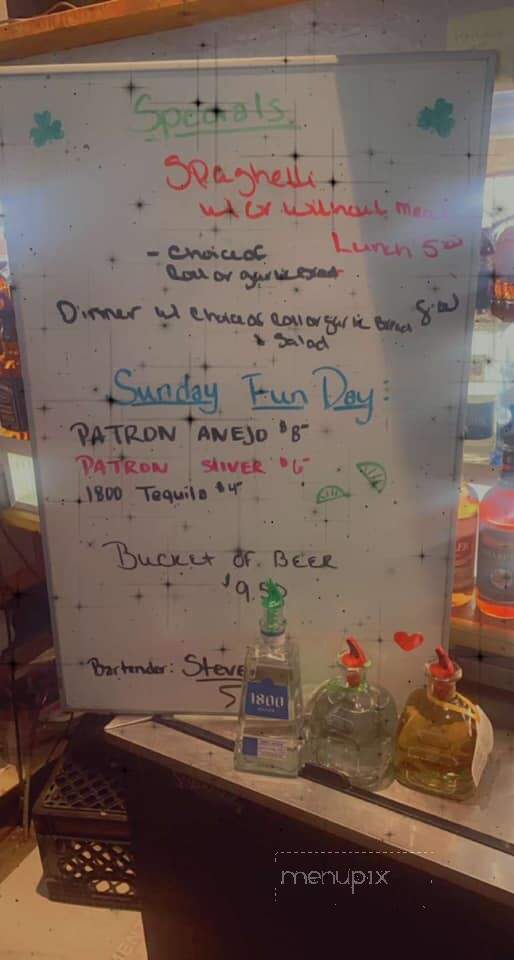 Specials
Spaghetti
w/ or without meat
Lunch 5.00
- choice of
Roll or garlic Bread
Dinner w/ choice of Roll or garlic Bread 8.00
& Salad
Sunday Fun Day:
PATRON ANEJO $8-
PATRON SILVER $6-
1800 Tequila $4-
BUCKET OF BEER
$9.50
Bartender: Steve
1800
menupix